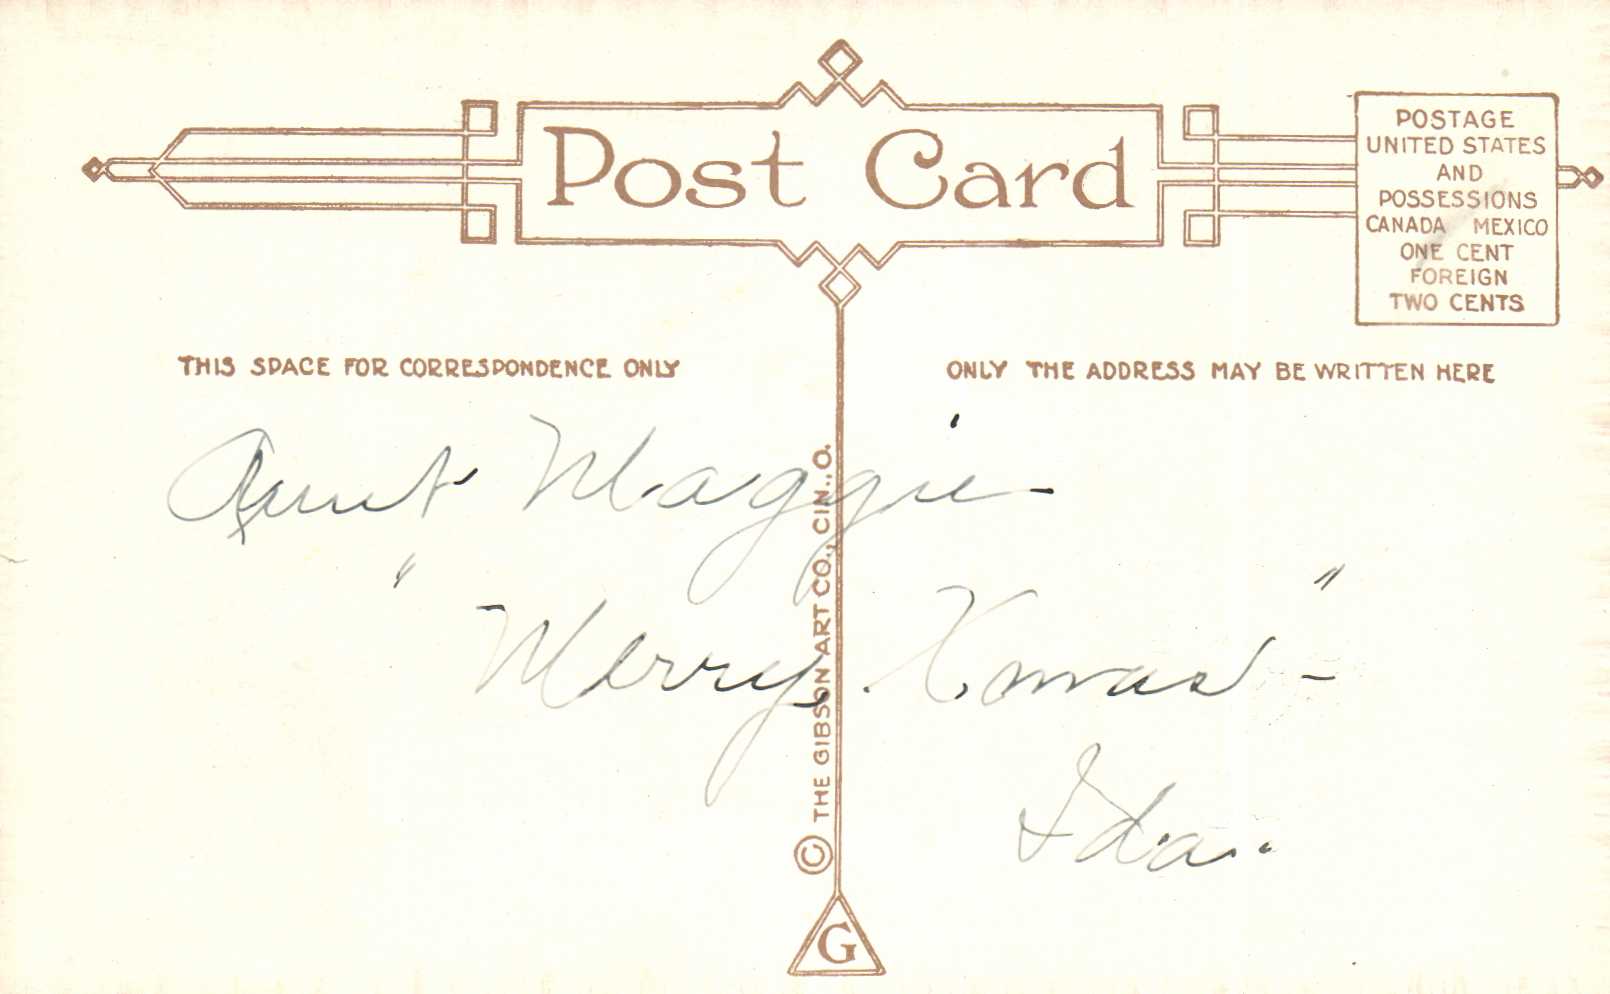 Post Card
POSTAGE
UNITED STATES
AND
POSSESSIONS
CANADA MEXICO
ONE CENT
FOREIGN
TWO CENTS
THIS SPACE FOR CORRESPONDENCE ONLY
ONLY THE ADDRESS MAY BE WRITTEN HERE
Aunt Maggie -
"Merry Xmas" -
Ida.
© THE GIBSON ART CO., CIN., O.
G